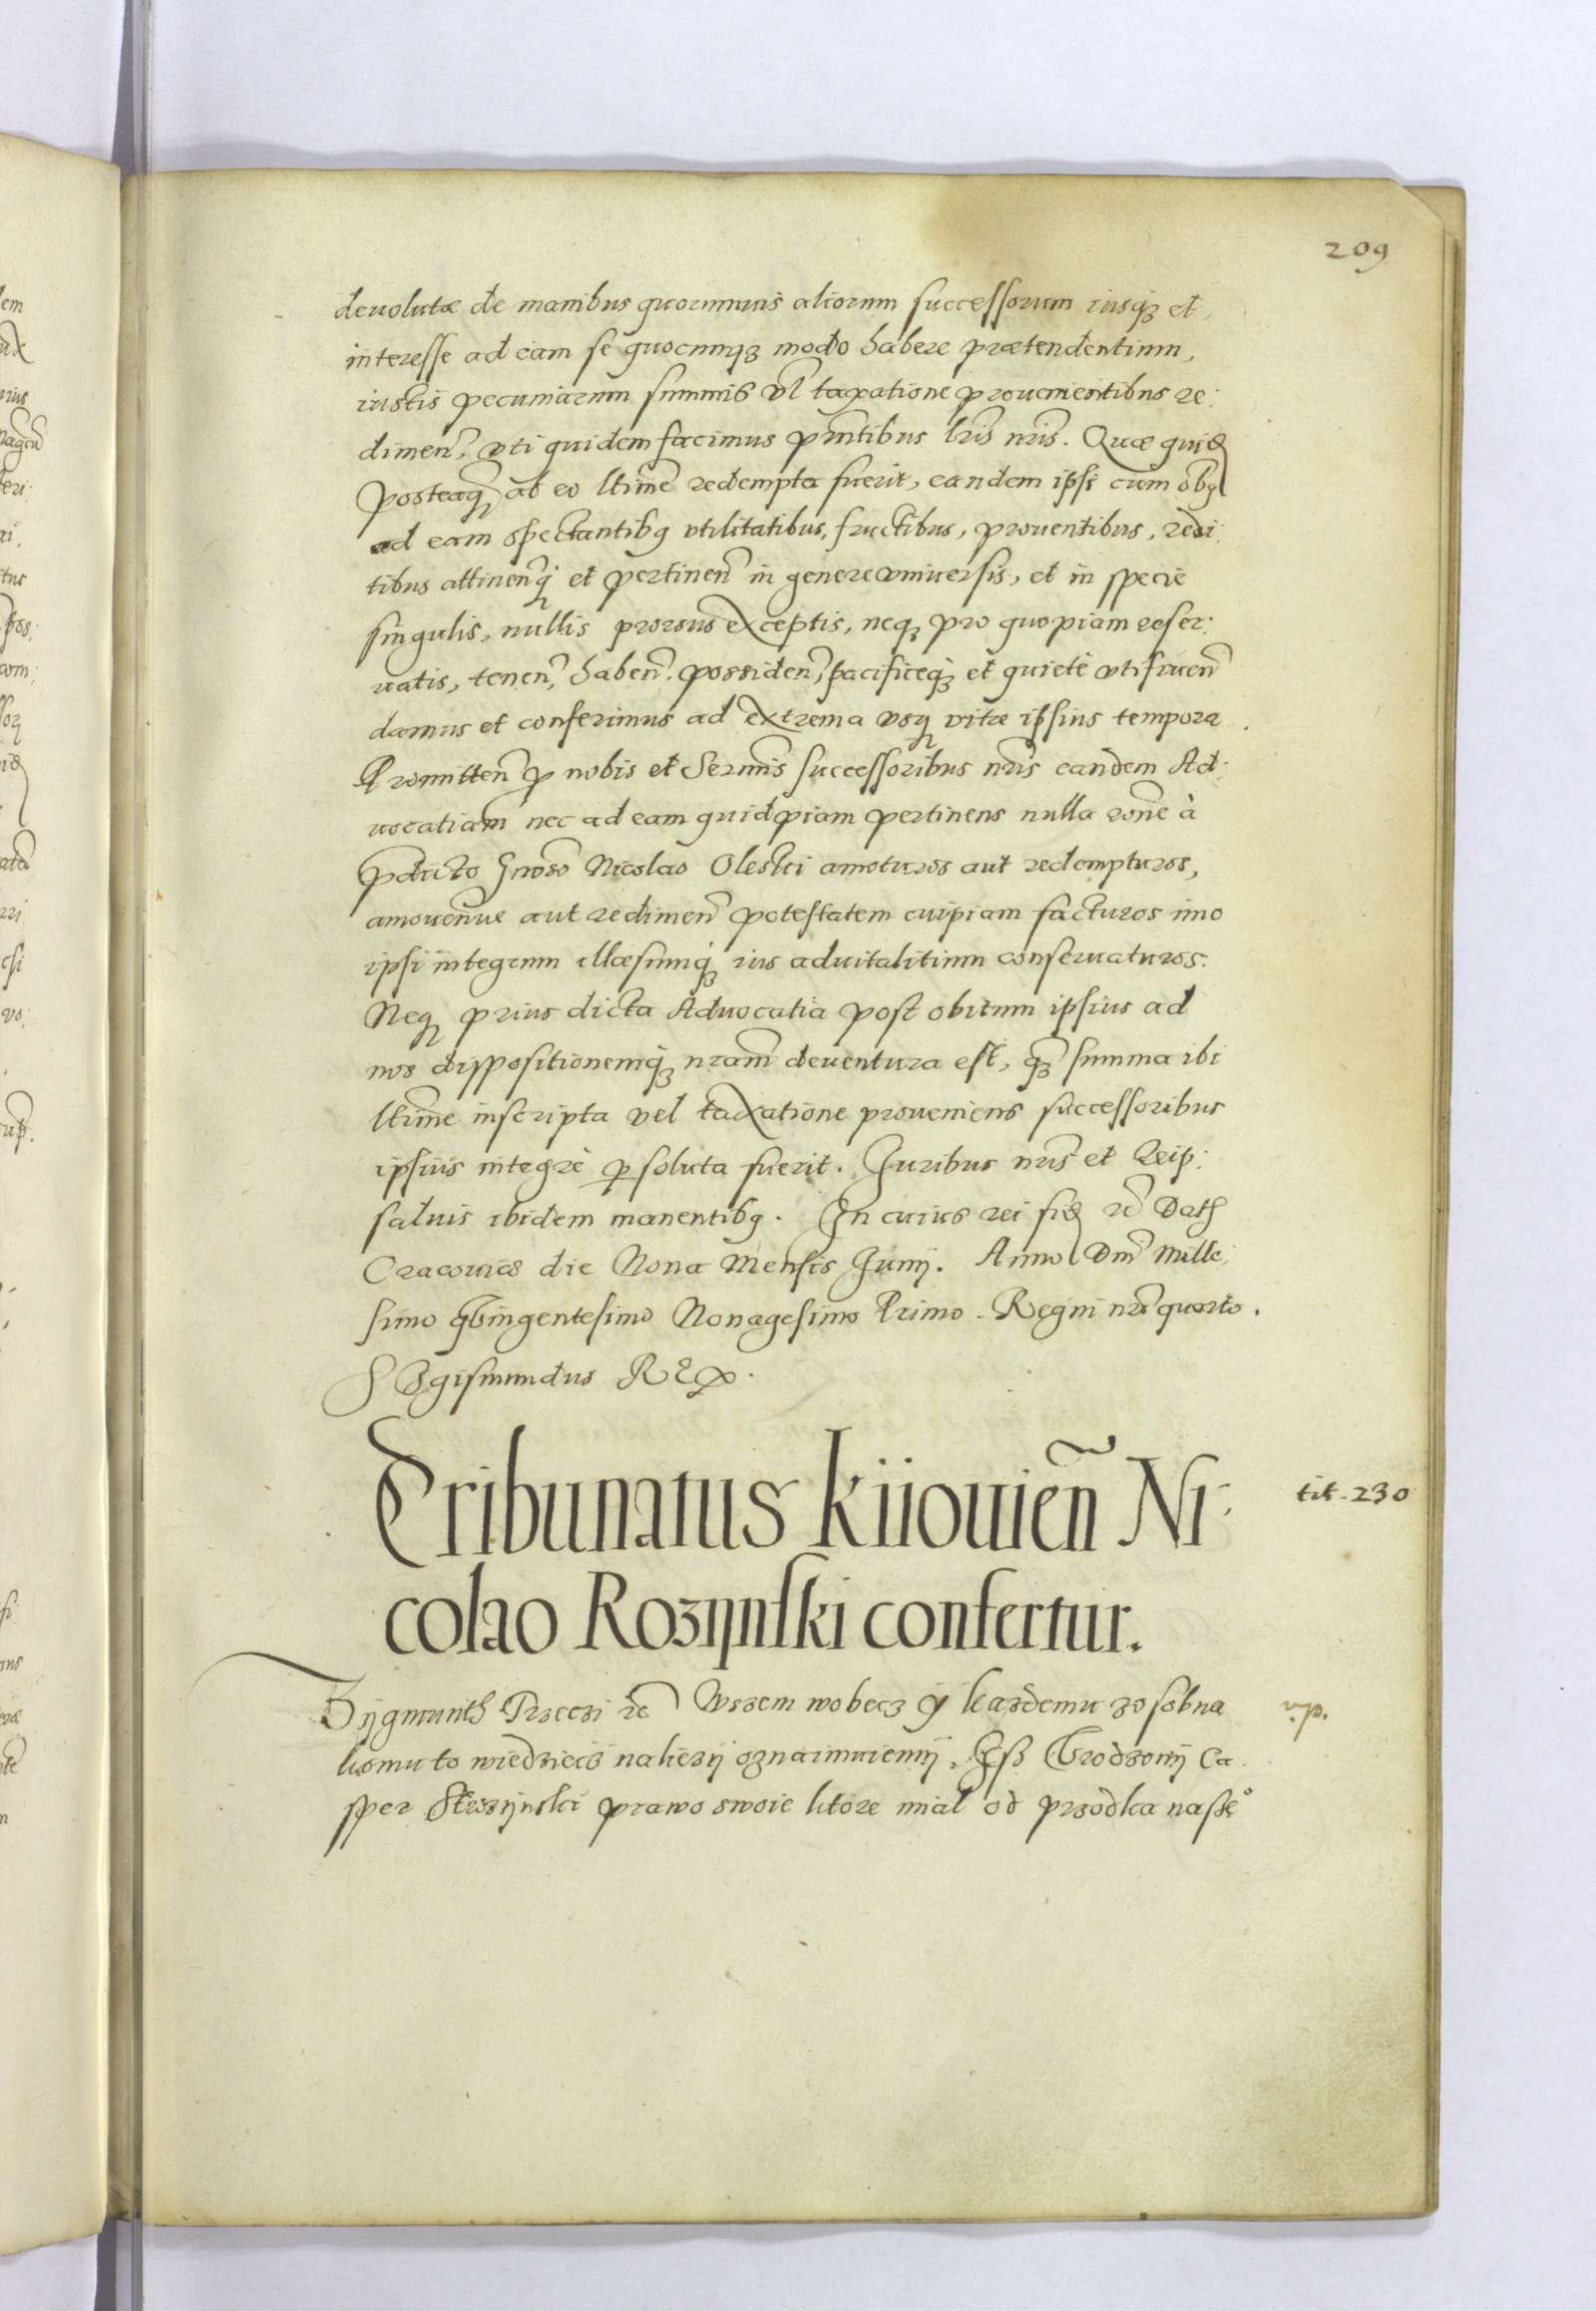 209
devolutæ de manibus quorumuis aliorum successorum iusq3 et
interesse ad eam se quocumq3 modo habere prætendentium,
iustis pecuniarum summis vl taxatione prouenientibus re:
dimen̄, vti quidem facimus pn̄tibus lr̄is nr̄is. Quæ quid̄
posteaq̄ ab eo ltime redempta fuerit, eandem ipsi cum oībq
ad eam spectantibq vtilitatibus, fructibus, prouentibus, redi:
tibus attinenq; et pertinen̄ in genere vniuersis, et in specie
singulis, nullis prorsus exceptis, neq; pro quopiam reser:
uatis, tenen̄, haben̄. possiden̄, pacificeq3 et quietè vtifruen̄
damus et conferimus ad extrema vsq; vitæ ipsius tempora.
Promitten̄ p nobis et Sermīs successoribus nr̄is eandem Ad:
uocatiam nec ad eam quidpiam pertinens nulla rōne à
pdicto Gnōso Nicolao Oleski amoturos aut redempturos,
amouenve aut redimen̄ potestatem cuipiam facturos imo
ipsi integrum illæsumq3 ius aduitalitium conseruaturos.
Neq; prius dicta Aduocatia post obitum ipsius ad
nos dispositionemq3 nr̄am deuentura est, q3 summa ibi
ltime inscripta vel taxatione proueniens successoribus
ipsius integrè psoluta fuerit. Juribus nr̄is et Reip:
saluis ibidem manentibq. In cuius rei fid̄ rc̄ Dath
Cracouiæ die Nona Mensis Junij. Anno Dnī Mille:
simo qbingentesimo Nonagesimo Primo. Regni nr̄i quarto.
Szgismundus REx.
Tribunatus kiiouien̄ Ni:
colao Rozynski confertur.
tit. 230
Zÿgmunth Trzeczi rc̄ Wszem wobecz ÿ kazdemu zosobna
komu to wiedziecz nalezÿ oznaimuiemÿ. Iß Vrodzonÿ Ca
sper Strzÿnski prawo swoie ktore mial od przodka naßeº